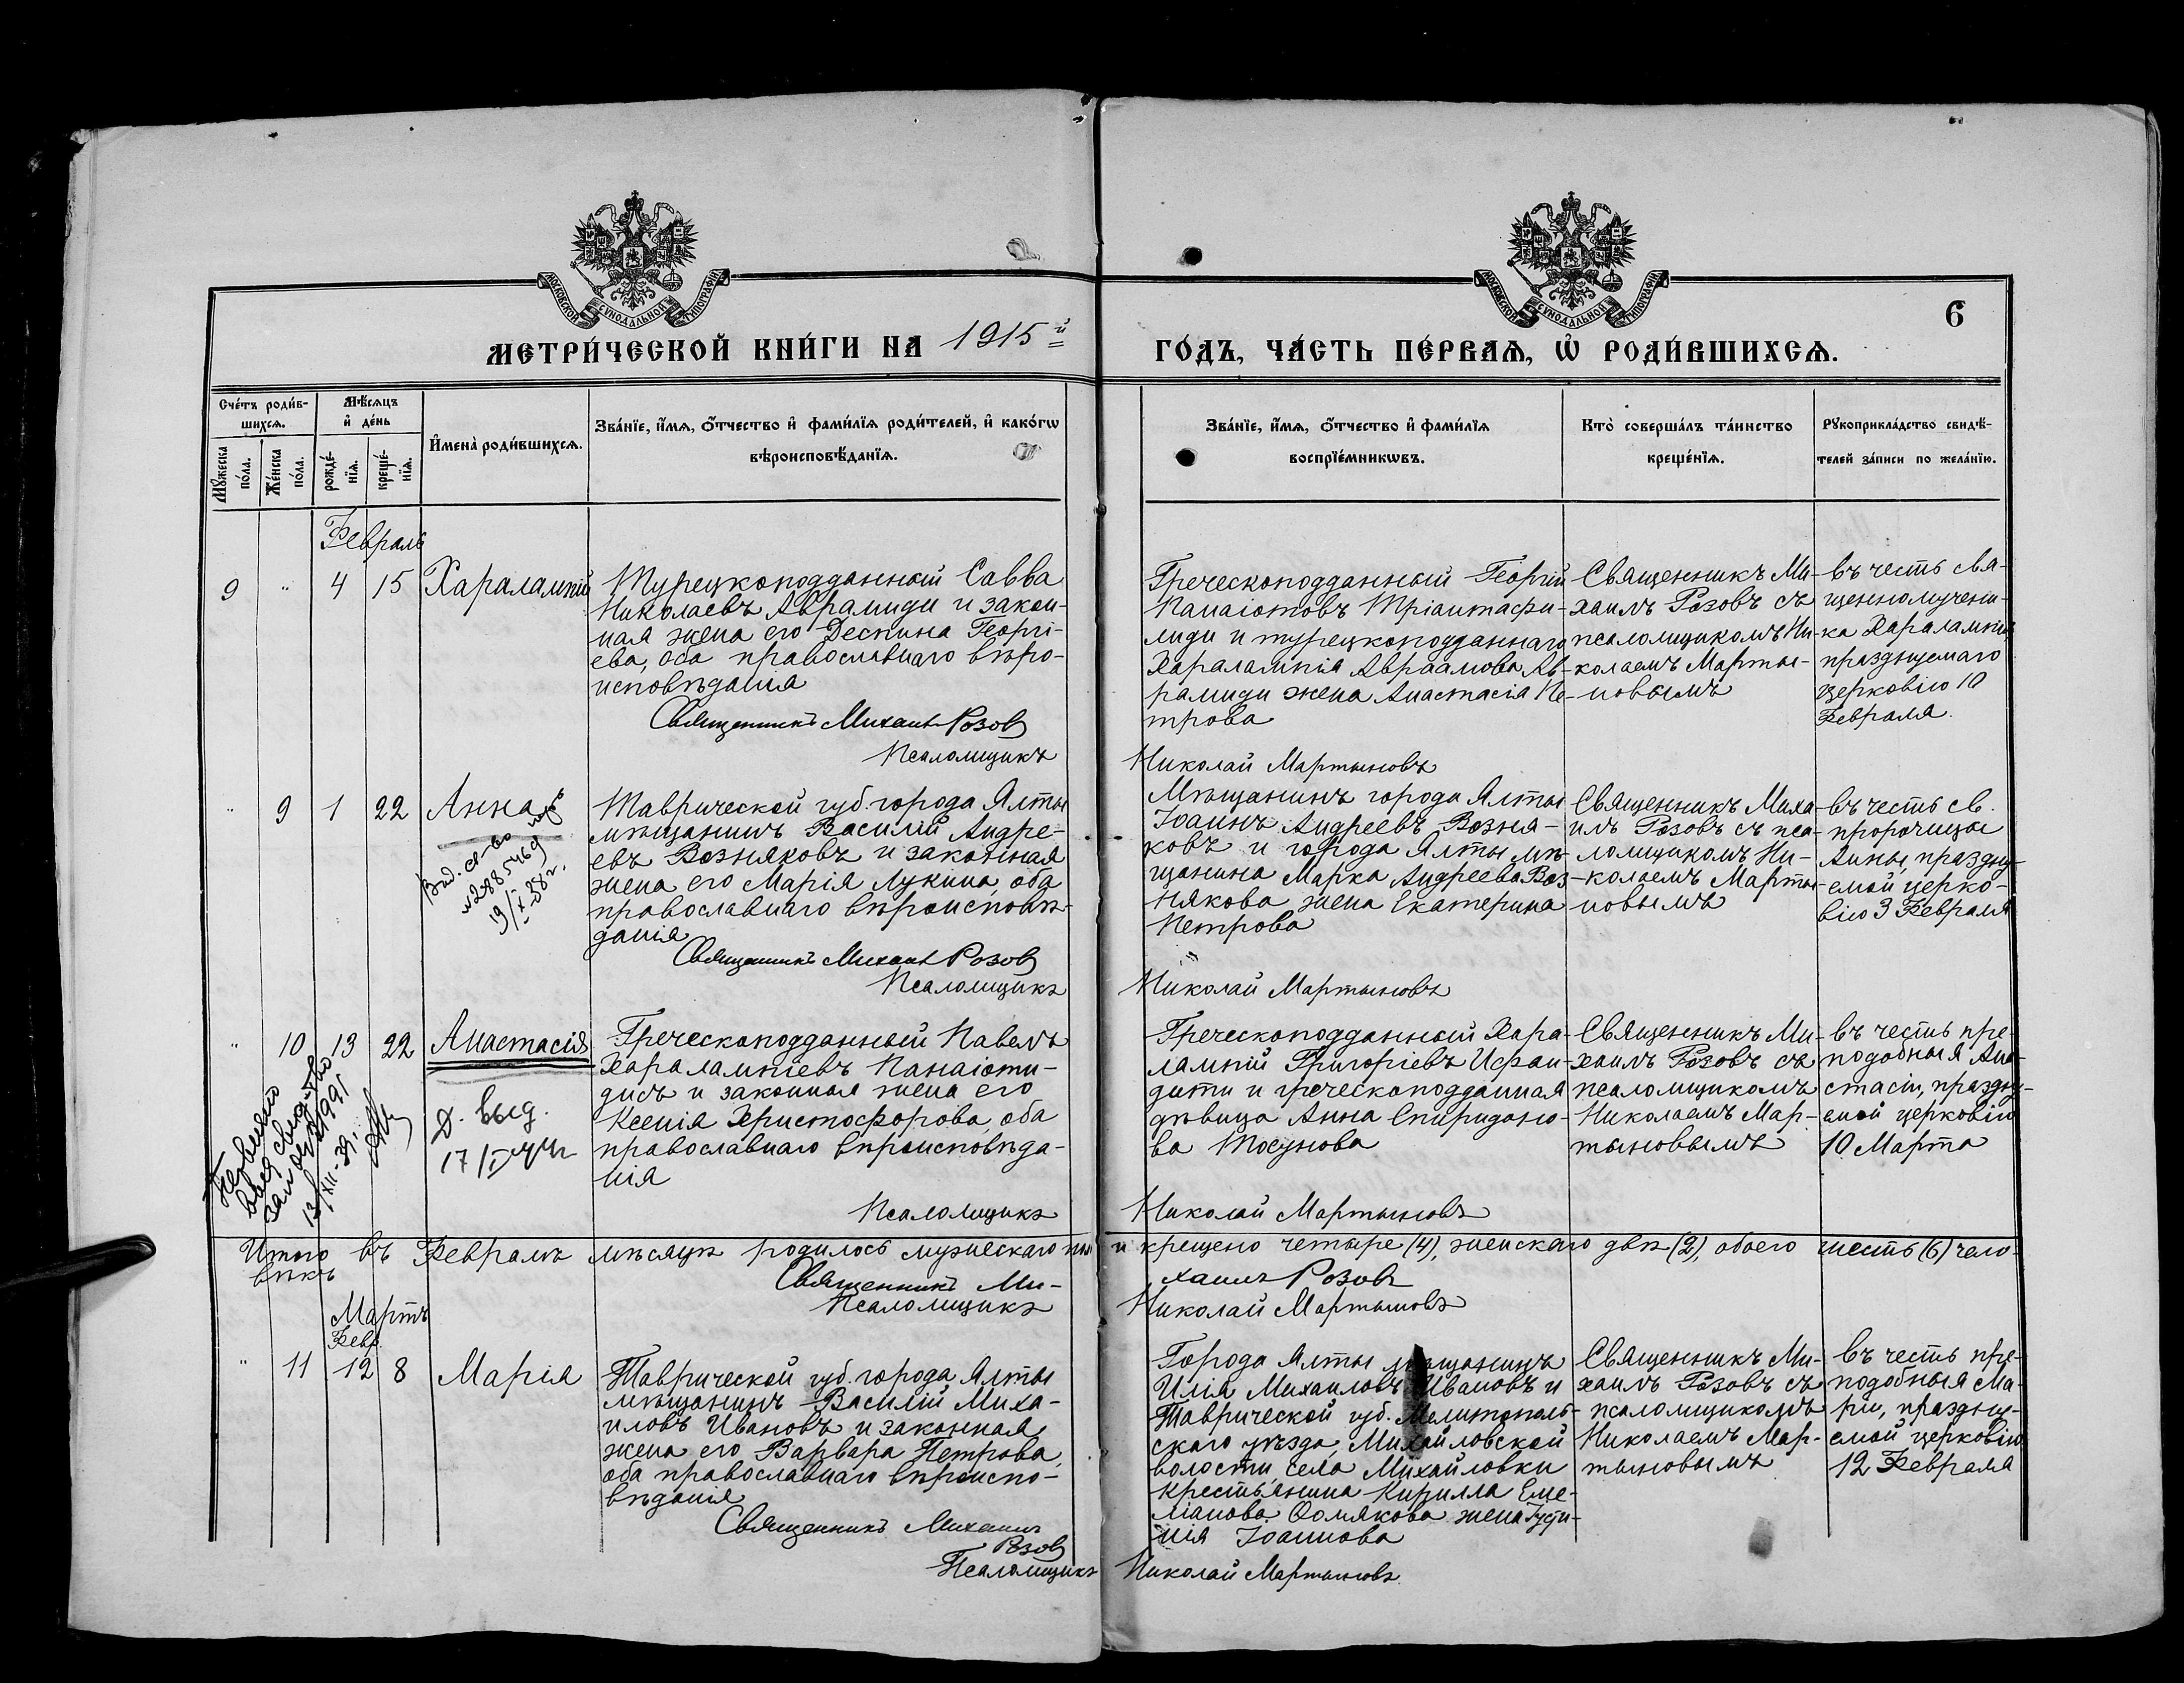 МОСКОВСКОЙ СѴНОДАЛЬНОЙ ТИПОГРАФІИ
МОСКОВСКОЙ СѴНОДАЛЬНОЙ ТИПОГРАФІИ
6
МЕТРИ́ЧЕСКОЙ КНИ́ГИ НА 1915 й
ГО́ДЪ, ЧА́СТЬ ПЕ́РВАѦ, Ѡ҆ РОДИ́ВШИХСѦ.
Сче́тъ роди́в-
шихсѧ.
Мѣ́сѧцъ
и҆ де́нь
Мꙋ́жеска
по́ла.
Же́нска
по́ла.
рожде́-
нїѧ.
креще́-
нїѧ.
И҆мена̀ роди́вшихсѧ.
Зва́нїе, и҆́мѧ, ѻ҆́тчество и҆ фами́лїѧ роди́телей, и҆ како́гѡ
вѣроисповѣ́данїѧ.
Зва́нїе, и҆́мѧ, ѻ҆́тчество и҆ фами́лїѧ
воспрїе́мникѡвъ.
Кто̀ соверша́лъ та́инство
креще́нїѧ.
Рꙋкоприкла́дство свидѣ́-
телей за́писи по жела́нїю.
Февраль
9 " 4 15 Харалампій
Турецкоподданный Савва
Николаевъ Аврамиди и закон-
ная жена его Деспина Георгі-
ева, оба православнаго вѣро-
исповѣданія
Священникъ Михаил Розов
Псаломщикъ
Греческоподданный Георгій
Панаіотовъ Тріантафи-
лиди и турецкоподданнаго
Харалампія Авраамова Ав-
рамиди жена Анастасія Пе-
трова
Николай Мартыновъ
Священникъ Ми-
хаилъ Розовъ съ
псаломщикомъ Ни-
колаемъ Марты-
новымъ
въ честь свя-
щенномучени-
ка Харалампія
празднуемаго
церковію 10
Февраля.
" 9 1 22 Анна
Выд. св-во
№ 2885469
19/X-38 г.
Таврической губ. города Ялты
мѣщанинъ Василій Андре-
евъ Возняковъ и законная
жена его Марія Лукина, оба
православнаго вѣроисповѣ-
данія
Священникъ Михаил Розов
Псаломщикъ
Мѣщанинъ города Ялты
Іоаннъ Андреевъ Возня-
ковъ и города Ялты мѣ-
щанина Марка Андреева Воз-
някова жена Екатерина
Петрова
Николай Мартыновъ
Священникъ Миха-
илъ Розовъ съ пса-
ломщикомъ Ни-
колаемъ Марты-
новымъ
въ честь св.
пророчицы
Анны, праздну-
емой церко-
вію 3 Февраля
" 10 13 22 Анастасія
Д. выд.
17/I
13/XII-39 г.
Греческоподданный Павелъ
Харалампіевъ Панаіоти-
дисъ и законная жена его
Ксенія Христофорова, оба
православнаго вѣроисповѣда-
нія
Псаломщикъ
Греческоподданный Хара-
лампій Григоріевъ Исфан-
дити и греческоподданная
дѣвица Анна Спиридоно-
ва Тосунова
Николай Мартыновъ
Священникъ Ми-
хаилъ Розовъ съ
псаломщикомъ
Николаемъ Мар-
тыновымъ
въ честь пре-
подобныя Ана-
стасіи, праздну-
емой церковію
10 Марта
Итого въ Февралѣ мѣсяцѣ родилось мужескаго пола и крещено четыре (4), женскаго двѣ (2), обоего шесть (6) чело-
вѣкъ
Священникъ Ми-
хаилъ Розовъ
Псаломщикъ
Николай Мартыновъ
Мартъ
Февр.
" 11 12 8 Марія
Таврической губ. города Ялты
мѣщанинъ Василій Миха-
иловъ Ивановъ и законная
жена его Варвара Петрова,
оба православнаго вѣроиспо-
вѣданія
Священникъ Михаилъ
Розов
Псаломщикъ
Города Ялты мѣщанинъ
Илія Михаиловъ Ивановъ и
Таврической губ. Мелитополь-
скаго уѣзда, Михайловской
волости, села Михайловки
крестьянина Кирилла Еме-
ліанова Ѳомякова жена Іусти-
нія Іоаннова
Николай Мартыновъ
Священникъ Ми-
хаилъ Розовъ съ
псаломщикомъ
Николаемъ Мар-
тыновымъ
въ честь пре-
подобныя Ма-
ріи, праздну-
емой церковію
12 Февраля